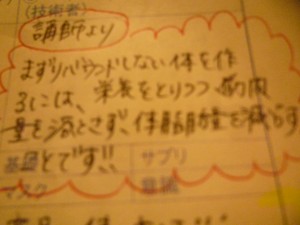 (技術者)
講師より
まずリバウンドしない体を作
るには、栄養をとりつつ、筋肉
量を落とさず、体脂肪量を減らす
ことです!!
基
サプリ
マスク
意識